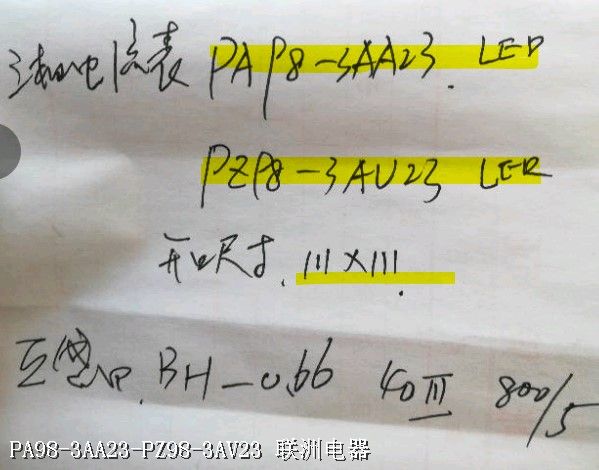 三相电流表 PAP8-3AA23. LED
PZP8-3AV23 LED
开口尺寸. 111×111.
互感器. BH-0.66 40III 800/5
PA98-3AA23-PZ98-3AV23 联洲电器